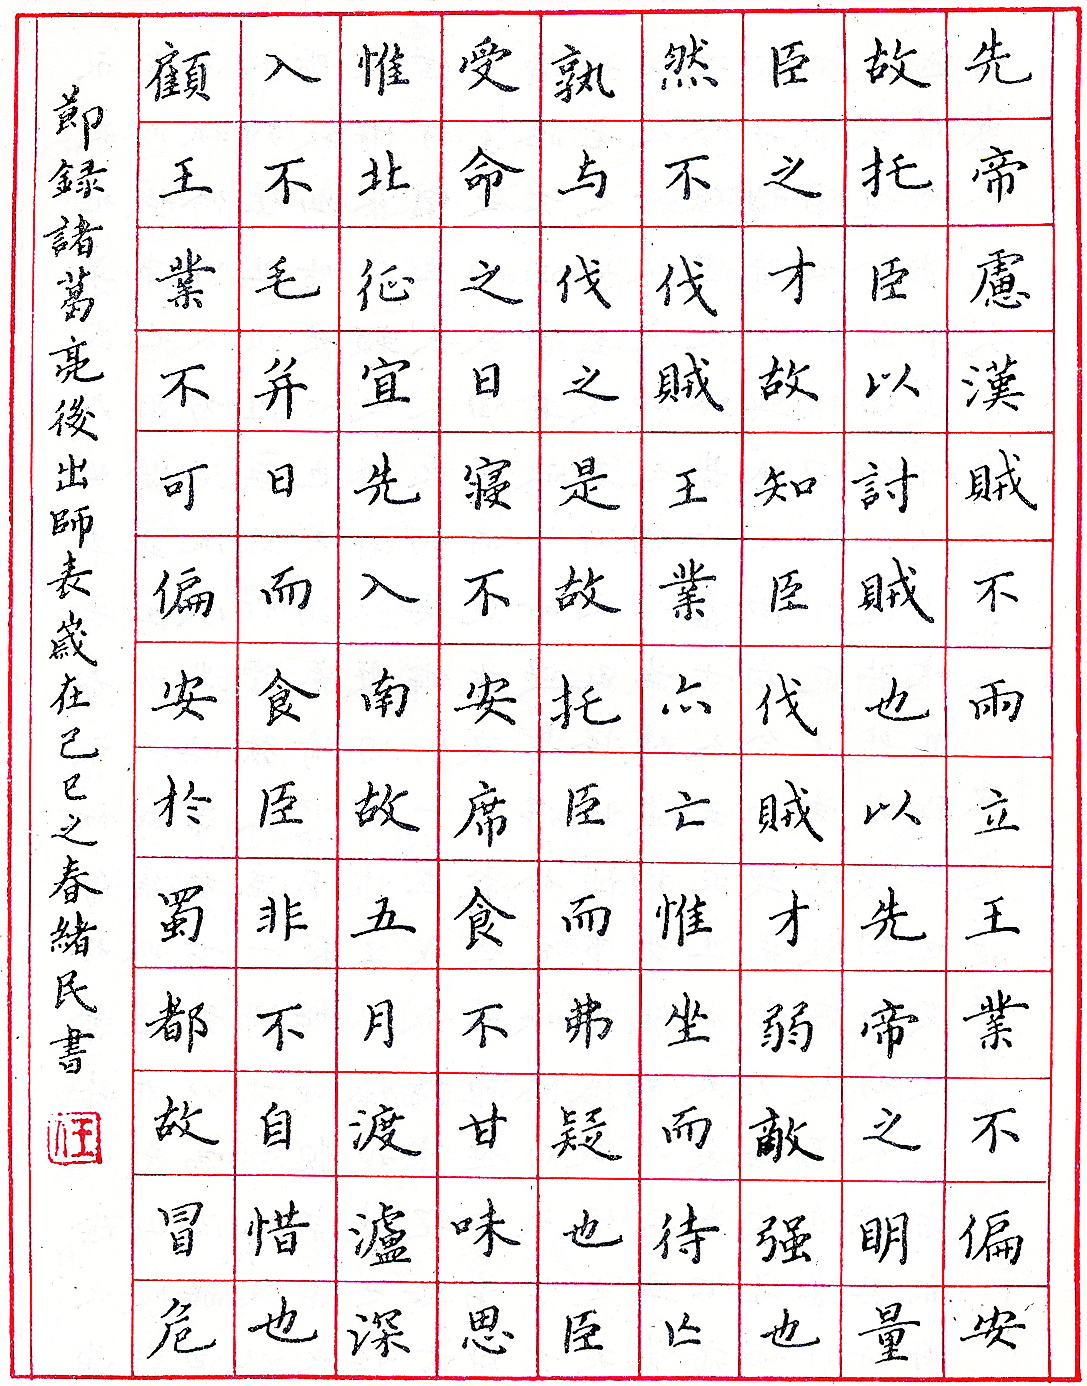 先帝慮漢賊不兩立王業不偏安
故托臣以討賊也以先帝之明量
臣之才故知臣伐賊才弱敵强也
然不伐賊王業亦亡惟坐而待亡
孰与伐之是故托臣而弗疑也臣
受命之日寢不安席食不甘味思
惟北征宜先入南故五月渡瀘深
入不毛并日而食臣非不自惜也
顧王業不可偏安於蜀都故冒危
節録諸葛亮後出師表歲在己巳之春緒民書
汪